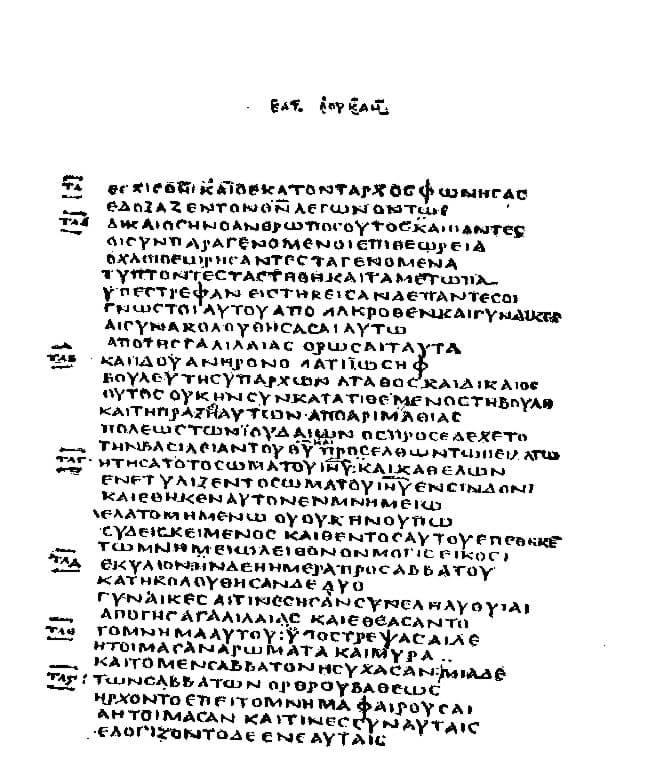 ΤΛ ΚΑΙ Ο ΕΚΑΤΟΝΤΑΡΧΟΣ ΦΩΝΗΣΑΣ
ΕΔΟΞΑΖΕΝ ΤΟΝ ΘΝ ΛΕΓΩΝ ΟΝΤΩΣ
ΤΛΑ ΔΙΚΑΙΟΣ ΗΝ Ο ΑΝΘΡΩΠΟΣ ΟΥΤΟΣ ΚΑΙ ΠΑΝΤΕΣ
ΟΙ ΣΥΝΠΑΡΑΓΕΝΟΜΕΝΟΙ ΕΠΙ ΘΕΩΡΕΙΑ
ΟΧΛΟΙ ΘΕΩΡΗΣΑΝΤΕΣ ΤΑ ΓΕΝΟΜΕΝΑ
ΤΥΠΤΟΝΤΕΣ ΤΑ ΣΤΗΘΗ ΚΑΙ ΤΑ ΜΕΤΩΠΑ
ΥΠΕΣΤΡΕΦΑΝ ΕΙΣΤΗΚΕΙΣΑΝ ΔΕ ΠΑΝΤΕΣ ΟΙ
ΓΝΩΣΤΟΙ ΑΥΤΟΥ ΑΠΟ ΜΑΚΡΟΘΕΝ ΚΑΙ ΓΥΝΑΙΚΕΣ
ΑΙ ΣΥΝΑΚΟΛΟΥΘΗΣΑΣΑΙ ΑΥΤΩ
ΑΠΟ ΤΗΣ ΓΑΛΙΛΑΙΑΣ ΟΡΩΣΑΙ ΤΑΥΤΑ
ΤΛΒ ΚΑΙ ΙΔΟΥ ΑΝΗΡ ΟΝΟΜΑΤΙ ΙΩΣΗΦ
ΒΟΥΛΕΥΤΗΣ ΥΠΑΡΧΩΝ ΑΓΑΘΟΣ ΚΑΙ ΔΙΚΑΙΟΣ
ΟΥΤΟΣ ΟΥΚ ΗΝ ΣΥΝΚΑΤΑΤΙΘΕΜΕΝΟΣ ΤΗ ΒΟΥΛΗ
ΚΑΙ ΤΗ ΠΡΑΞΕΙ ΑΥΤΩΝ ΑΠΟ ΑΡΙΜΑΘΙΑΣ
ΠΟΛΕΩΣ ΤΩΝ ΪΟΥΔΑΙΩΝ ΟΣ ΠΡΟΣΕΔΕΧΕΤΟ
ΤΗΝ ΒΑΣΙΛΕΙΑΝ ΤΟΥ ΘΥ ΠΡΟΣΕΛΘΩΝ ΤΩ ΠΕΙΛΑΤΩ
ΤΛΓ ΗΤΗΣΑΤΟ ΤΟ ΣΩΜΑ ΤΟΥ ΙΗΥ : ΚΑΙ ΚΑΘΕΛΩΝ
ΕΝΕΤΥΛΙΞΕΝ ΤΟ ΣΩΜΑ ΤΟΥ ΙΗΥ ΕΝ ΣΙΝΔΟΝΙ
ΚΑΙ ΕΘΗΚΕΝ ΑΥΤΟΝ ΕΝ ΜΝΗΜΕΙΩ
ΛΕΛΑΤΟΜΗΜΕΝΩ ΟΥ ΟΥΚ ΗΝ ΟΥΠΩ
ΟΥΔΕΙΣ ΚΕΙΜΕΝΟΣ ΚΑΙ ΘΕΝΤΟΣ ΑΥΤΟΥ ΕΠΕΘΗΚΕ
ΤΩ ΜΝΗΜΕΙΩ ΛΕΙΘΟΝ ΟΝ ΜΟΓΙΣ ΕΙΚΟΣΙ
ΤΛΔ ΕΚΥΛΙΟΝ : ΗΝ ΔΕ Η ΗΜΕΡΑ ΠΡΟ ΣΑΒΒΑΤΟΥ
ΚΑΤΗΚΟΛΟΥΘΗΣΑΝ ΔΕ ΔΥΟ
ΓΥΝΑΙΚΕΣ ΑΙΤΙΝΕΣ ΗΣΑΝ ΣΥΝΕΛΗΛΟΥΥΙΑΙ
ΑΠΟ ΤΗΣ ΓΑΛΙΛΑΙΑΣ ΚΑΙ ΕΘΕΑΣΑΝΤΟ
ΤΛΕ ΤΟ ΜΝΗΜΑ ΑΥΤΟΥ : ΫΠΟΣΤΡΕΨΑΣΑΙ ΔΕ
ΗΤΟΙΜΑΣΑΝ ΑΡΩΜΑΤΑ ΚΑΙ ΜΥΡΑ
ΚΑΙ ΤΟ ΜΕΝ ΣΑΒΒΑΤΟΝ ΗΣΥΧΑΣΑΝ : ΜΙΑ ΔΕ
ΤΛϚ : ΤΩΝ ΣΑΒΒΑΤΩΝ ΟΡΘΡΟΥ ΒΑΘΕΩΣ
ΗΡΧΟΝΤΟ ΕΠΕΙ ΤΟ ΜΝΗΜΑ ΦΑΙΡΟΥΣΑΙ
Α ΗΤΟΙΜΑΣΑΝ ΚΑΙ ΤΙΝΕΣ ΣΥΝ ΑΥΤΑΙΣ
ΕΛΟΓΙΖΟΝΤΟ ΔΕ ΕΝ ΕΑΥΤΑΙΣ